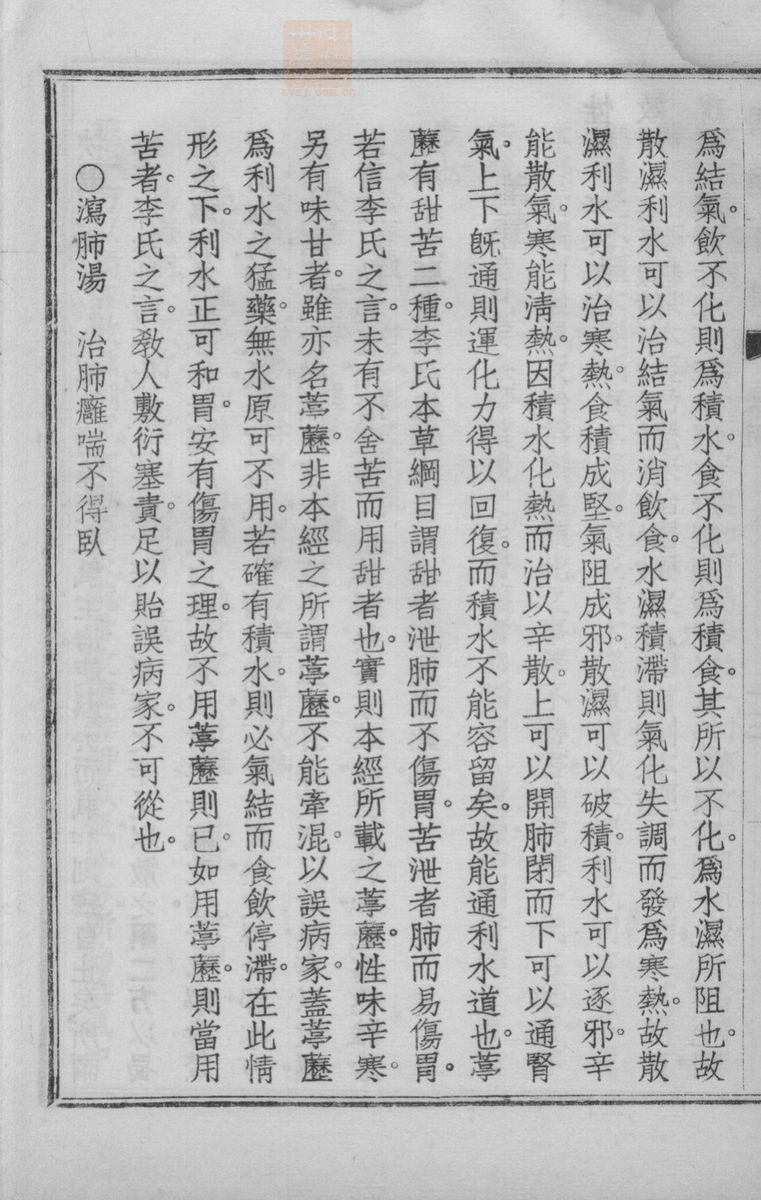 爲結氣。飲不化則爲積水。食不化則爲積食。其所以不化。爲水濕所阻也。故
散濕利水可以治結氣而消飲食。水濕積滯則氣化失調而發爲寒熱。故散
濕利水可以治寒熱。食積成堅。氣阻成邪。散濕可以破積。利水可以逐邪。辛
能散氣。寒能淸熱。因積水化熱而治以辛散。上可以開肺閉而下可以通腎
氣。上下旣通則運化力得以回復。而積水不能容留矣。故能通利水道也。葶
藶有甜苦二種。李氏本草綱目謂甜者泄肺而不傷胃。苦泄者肺而易傷胃。
若信李氏之言。未有不舍苦而用甜者也。實則本經所載之葶藶。性味辛寒。
另有味甘者。雖亦名葶藶。非本經之所謂葶藶。不能牽混。以誤病家。蓋葶藶
爲利水之猛藥。無水原可不用。若確有積水。則必氣結而食飲停滯。在此情
形之下。利水正可和胃。安有傷胃之理。故不用葶藶則已。如用葶藶。則當用
苦者。李氏之言。敎人敷衍塞責。足以貽誤病家。不可從也。
○瀉肺湯　治肺癰喘不得臥